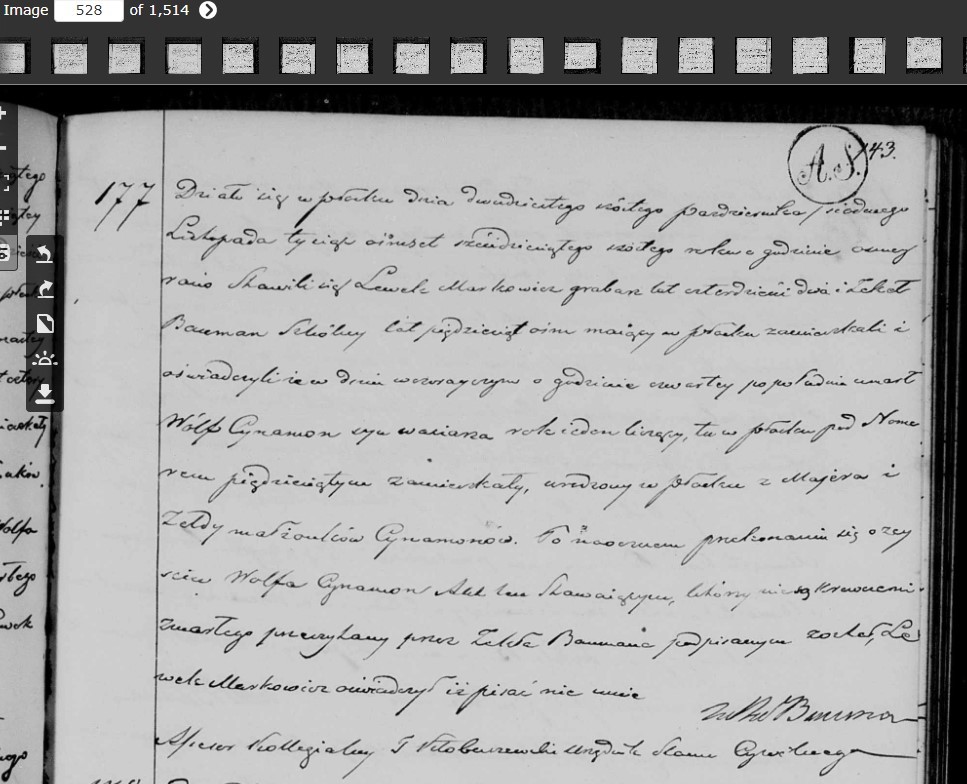 Image 528 of 1,514
A. S. 43.
177 Działo się w płocku dnia dwudziestego szóstego pazdziernika / siódmego
Listopada tysiąc ośmset sześćdziesiątego szóstego roku o godzinie
rano Stawili się Lewek Markowicz grabarz lat czterdzieści dwa i Zelek
Bauman Szkólny lat pięćdziesiąt ośm maiący w płocku zamieszkali i
oświadczyli że w dniu wczorayszym o godzinie czwartey popołudniu umarł
Wólf Cynamon syn rok ieden liczący, tu w płocku pod Nome
rem pięćdziesiątym zamieszkały, urodzony w płocku z Majera i
Zeldy małżonków Cynamonów. Po naocznem przekonaniu się o zey
ściu Wolfa Cynamon Akt ten Stawaiącym, którzy nie są krewnemi
zmarłego przeczytany przez Zelka Baumana podpisanym został, Le
wek Markowicz oświadczył iż pisać nie umie
Bauman
Assesor Kollegialny Urzędnik Stanu Cywilnego